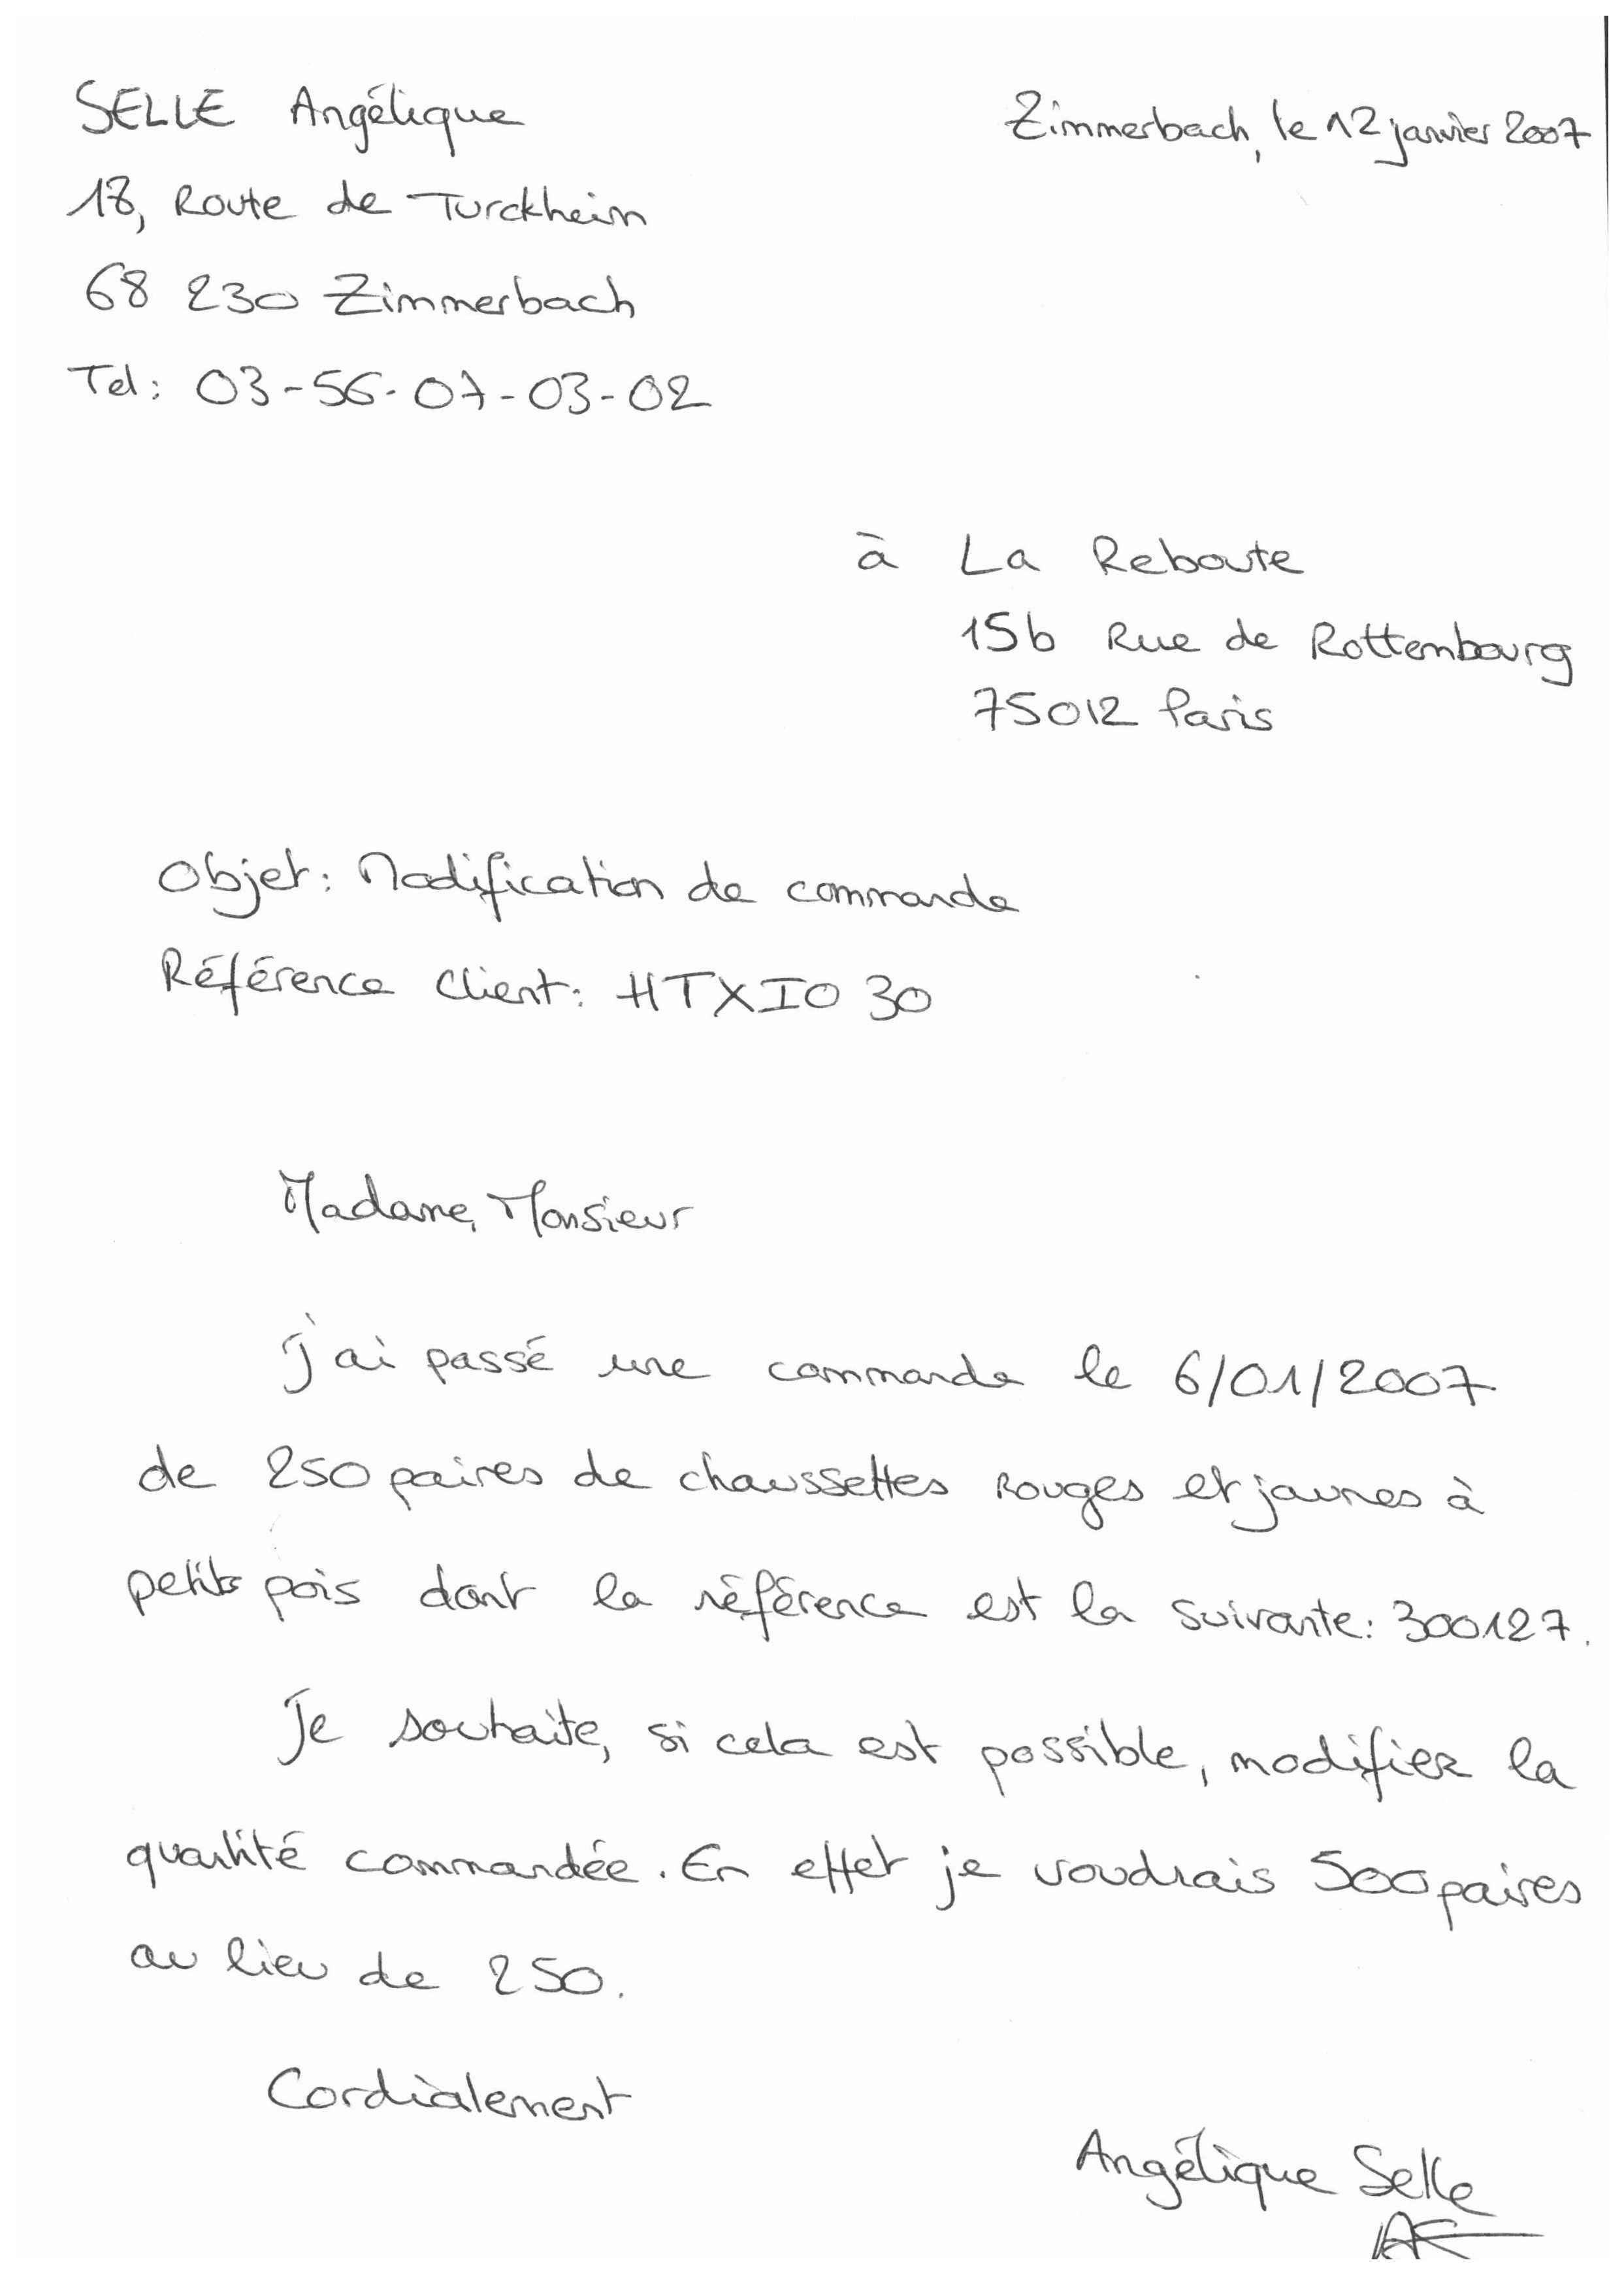 SELLE Angélique
Zimmerbach, le 12 janvier 2007
18, Route de Turckheim
68 230 Zimmerbach
Tel: 03-56-07-03-02
à La Reboute
15b Rue de Rottembourg
75012 Paris
Objet: Modification de commande
Référence client: HTXIO 30
Madame, Monsieur
J'ai passé une commande le 6/01/2007
de 250 paires de chaussettes rouges et jaunes à
petits pois dont la référence est la suivante: 300127.
Je souhaite, si cela est possible, modifier la
quantité commandée. En effet je voudrais 500 paires
au lieu de 250.
Cordialement
Angélique Selle